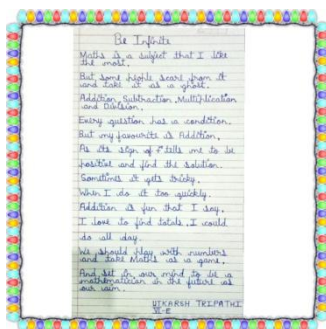 Be Infinite
Maths is a subject that I like
the most,
But some people scare from it
and take it as a ghost.
Addition, Subtraction, Multiplication
and Division,
Every question has a condition.
But my favourite is Addition,
As its sign of + tells me to be
positive and find the solution.
Sometimes it gets tricky,
When I do it too quickly.
Addition is fun that I say,
I love to find totals, I could
do all day.
We should play with numbers
and take Maths as a game,
And set in our mind to be a
mathematician in the future as
our aim.
UTKARSH TRIPATHI
VI-E